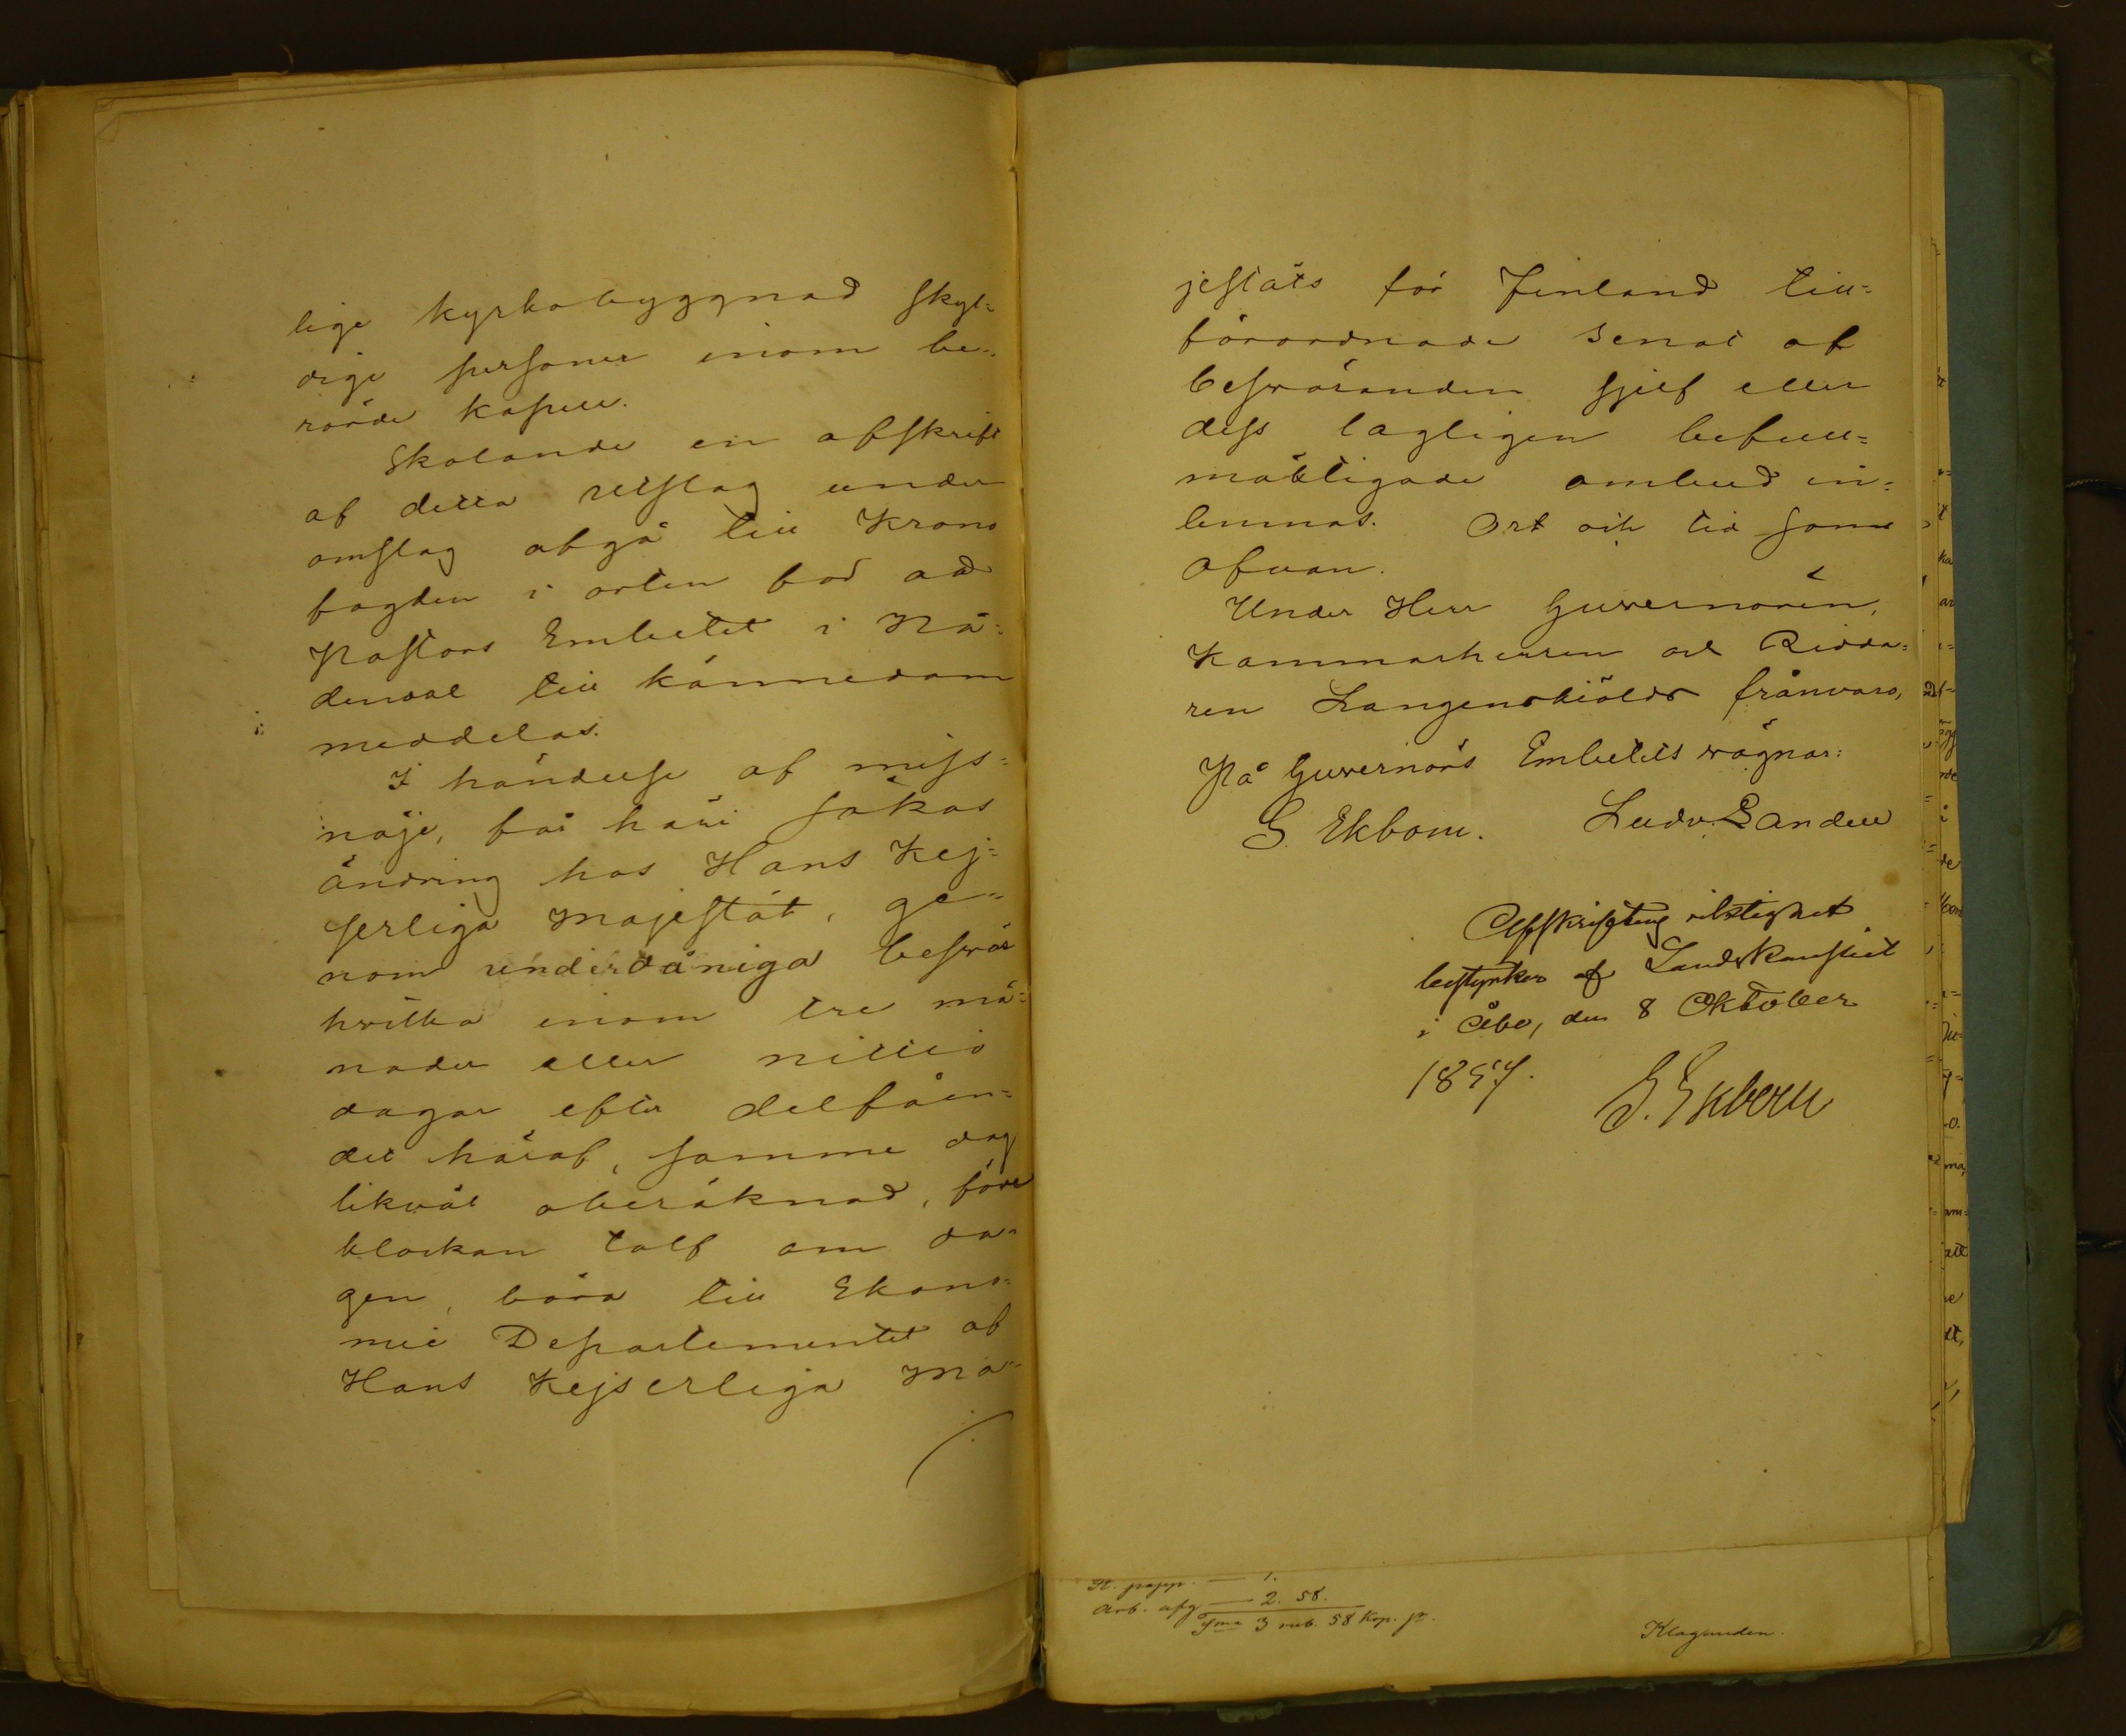 lige kyrkobyggnad skyl=
dige personer inom be=
rörde kapell.
Skolande en afskrift
af detta utslag under
omslag afgå till Krono
fogden i orten för att
Pastors Embetet i Nå=
dendal till kännedom
meddelas.
I händelse af miss=
nöje, får häri sökas
ändring hos Hans Kej=
serliga Majestät, ge=
nom underdåniga besvär
hvilka inom tre må=
nader eller nittio
dagar efter delfåen=
det häraf, samme dag
likväl oberäknad, före
klockan tolf om da=
gen, böra till Ekono=
mie Departementet af
Hans Kejserliga Ma=
jestäts för Finland till=
förordnade Senat af
besväranden sjelf eller
dess lagligen befull=
mäktigade ombud in=
lemnas. Ort och tid som
ofvan.
Under Herr Guvernören,
Kammarherren och Ridda=
ren Langenskiölds frånvaro,
På Guvernörs Embetets vägnar:
G. Ekbom. Ludv. Sandell
Afskriftens riktighet
bestyrker af Landskansliet
i Åbo, den 8 Oktober
1857.
G. Ekbom
St. papp. — 1.
Arb. afg — 2. 58.
Sma 3 rub. 58 Kop. sr.
Klaganden.